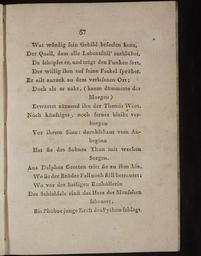 57
Was würdig sein Gebild beseelen kann,
Der Quell, dem alle Lebensfüll' entfliesst,
Da schöpfet er, und trägt den Funken fort,
Der willig ihm auf seine Fackel sprühet.
Er eilt zurück zu dem verlassnen Ort;
Doch als er naht, (kaum dämmerte der
Morgen)
Erwartet zürnend ihn der Themis Wort,
Noch künftiges, noch fernes bleibt ver-
borgen
Vor ihrem Sinn: durchschaut vom An-
beginn
Hat sie des Sohnes Thun mit wachen
Sorgen.
Aus Delphos Grotten tritt sie zu ihm hin,
Wo sie der Brüder Fall noch still betrauert;
Wo vor der heiligen Rathhüllerin
Des Schicksals einst das Herz der Menschen
schauert,
Bis Phöbus junge Kraft den Python schlägt.